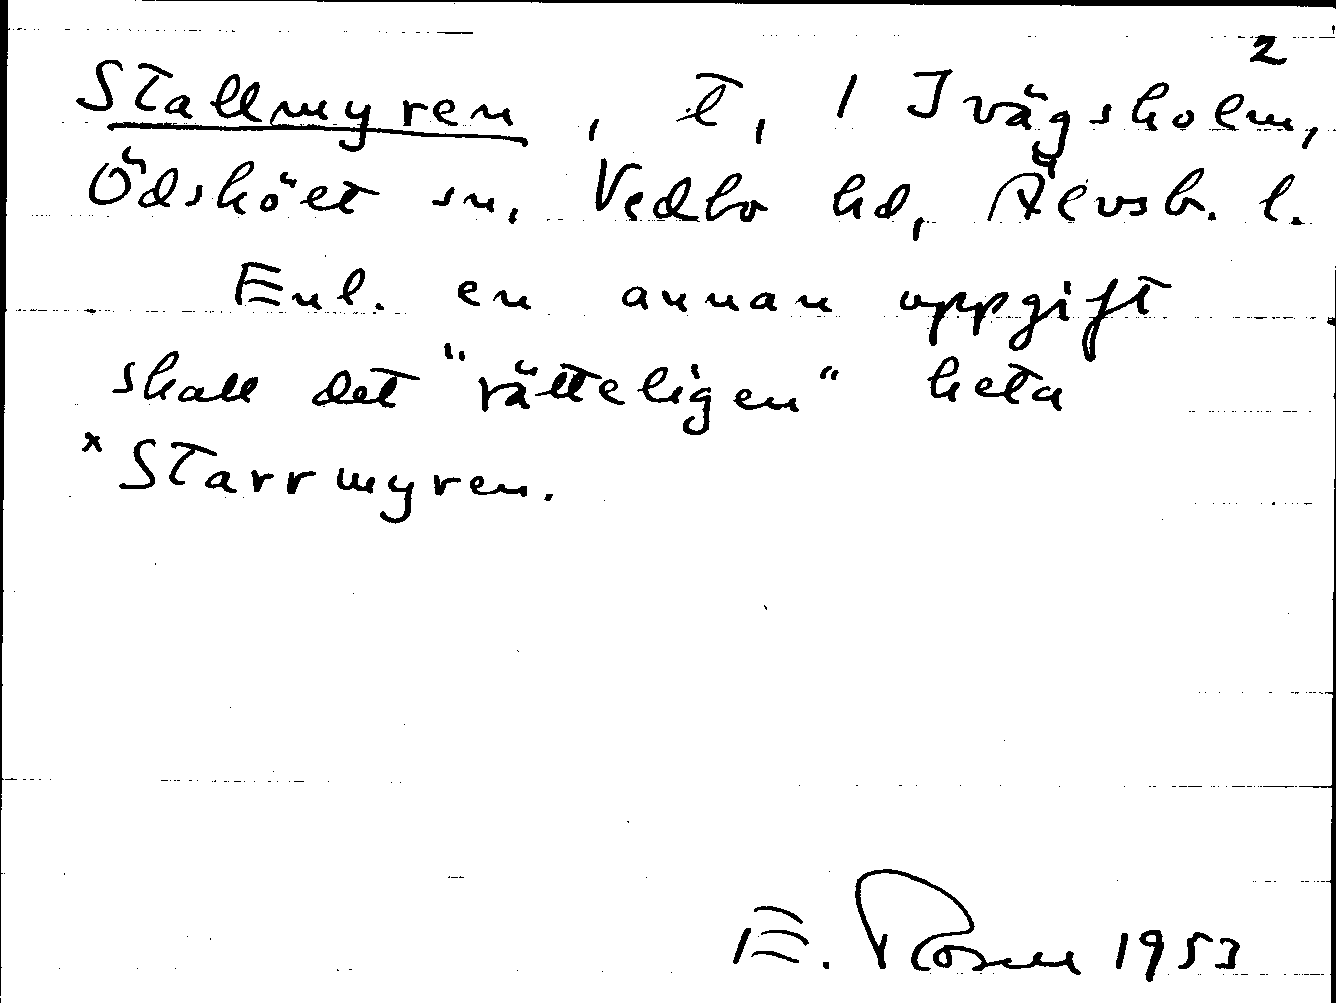 2
Stallmyren, t, 1 Ivägsholm,
Ödsköet sn, Vedbo hd, Älvsb. l.
Enl. en annan uppgift
skall det "rätteligen" heta
*Starrmyren.
E. Rosell 1953